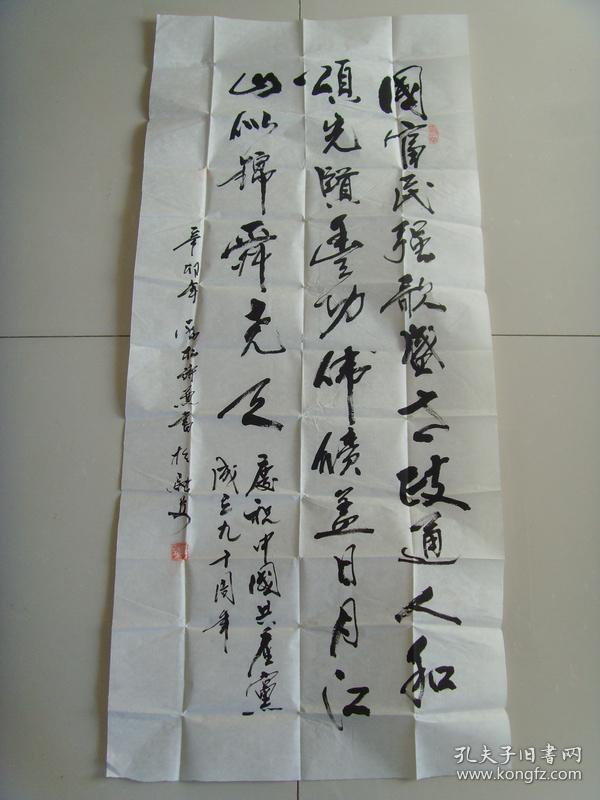 國富民强歌盛世政通人和
頌先賢豊功伟績盖日月江
山似錦舜尧天
慶祝中國共産黨
成立九十周年
辛卯年 诗兼書於
孔夫子旧書网
www.kongfz.com